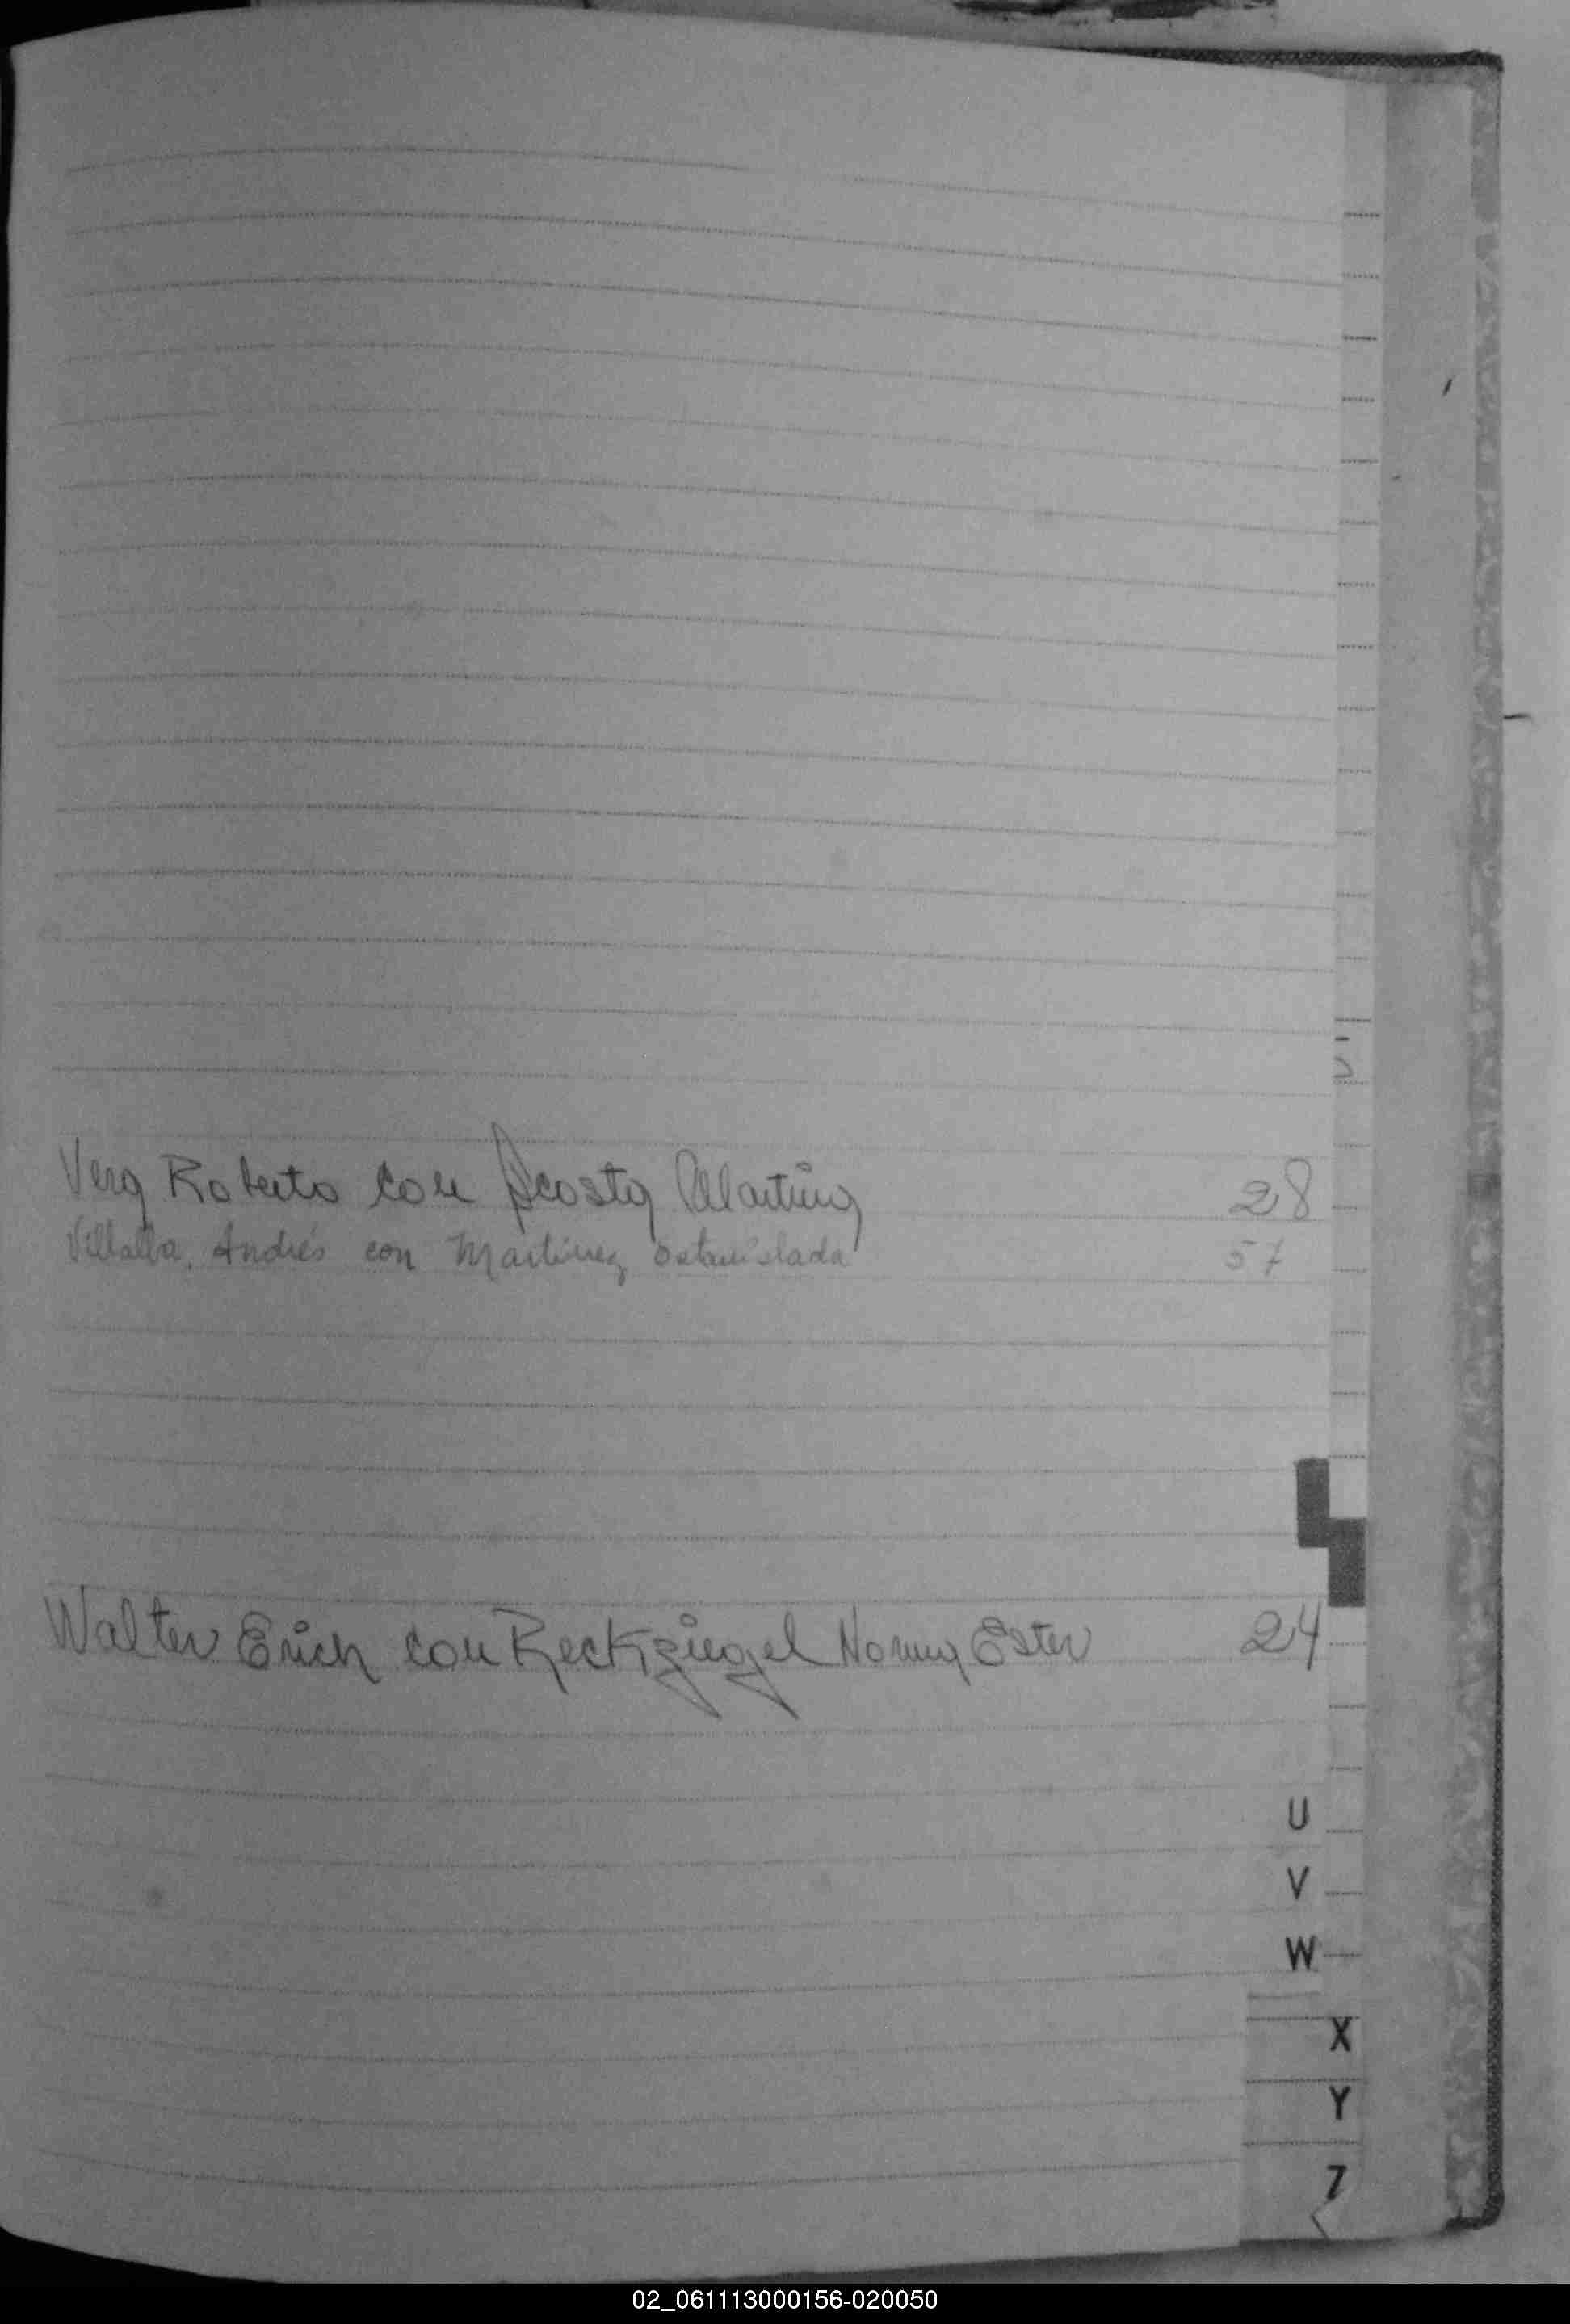 Vera Roberto con Acosta Martina 28
Villalba, Andrés con Martinez Estanislada 57
Walter Erich con Reckziegel Norma Ester 24
U
V
W
X
Y
Z
02_061113000156-020050